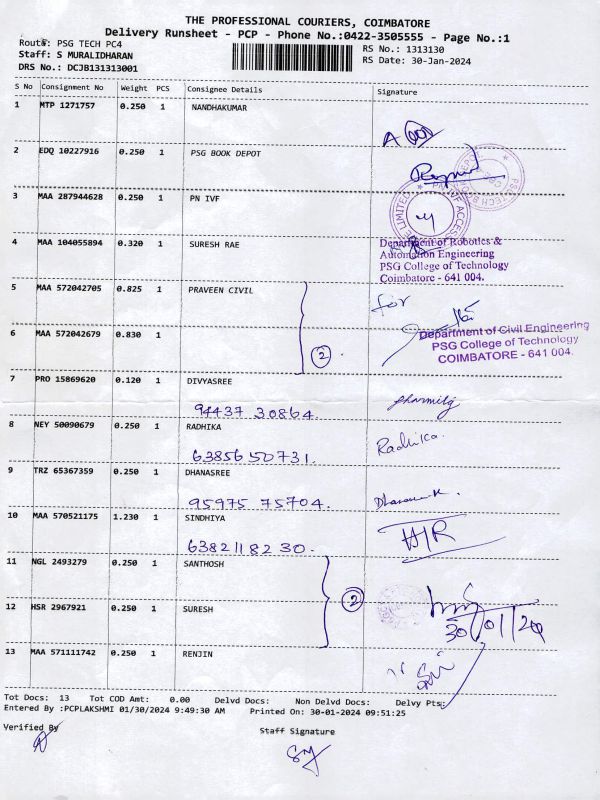 THE PROFESSIONAL COURIERS, COIMBATORE
Delivery Runsheet - PCP - Phone No.:0422-3505555 - Page No.:1
Route: PSG TECH PC4
RS No.: 1313130
Staff: S MURALIDHARAN
RS Date: 30-Jan-2024
DRS No.: DCJB131313001
S No Consignment No Weight PCS Consignee Details Signature
1 MTP 1271757 0.250 1 NANDHAKUMAR
2 EDQ 10227916 0.250 1 PSG BOOK DEPOT
3 MAA 287944628 0.250 1 PN IVF
4 MAA 104055894 0.320 1 SURESH RAE
Department of Robotics &
Automation Engineering
PSG College of Technology
Coimbatore - 641 004.
5 MAA 572042705 0.825 1 PRAVEEN CIVIL
for
6 MAA 572042679 0.830 1
2
Department of Civil Engineering
PSG College of Technology
COIMBATORE - 641 004.
7 PRO 15869620 0.120 1 DIVYASREE
94437 30864.
8 NEY 50090679 0.250 1 RADHIKA
Radhika.
63856 50731.
9 TRZ 65367359 0.250 1 DHANASREE
95975 75704.
10 MAA 570521175 1.230 1 SINDHIYA
63821 182 30.
11 NGL 2493279 0.250 1 SANTHOSH
2
12 HSR 2967921 0.250 1 SURESH
13 MAA 571111742 0.250 1 RENJIN
Tot Docs: 13 Tot COD Amt: 0.00 Delvd Docs: Non Delvd Docs: Delvy Pts:
Entered By :PCPLAKSHMI 01/30/2024 9:49:30 AM Printed On: 30-01-2024 09:51:25
Verified By
Staff Signature